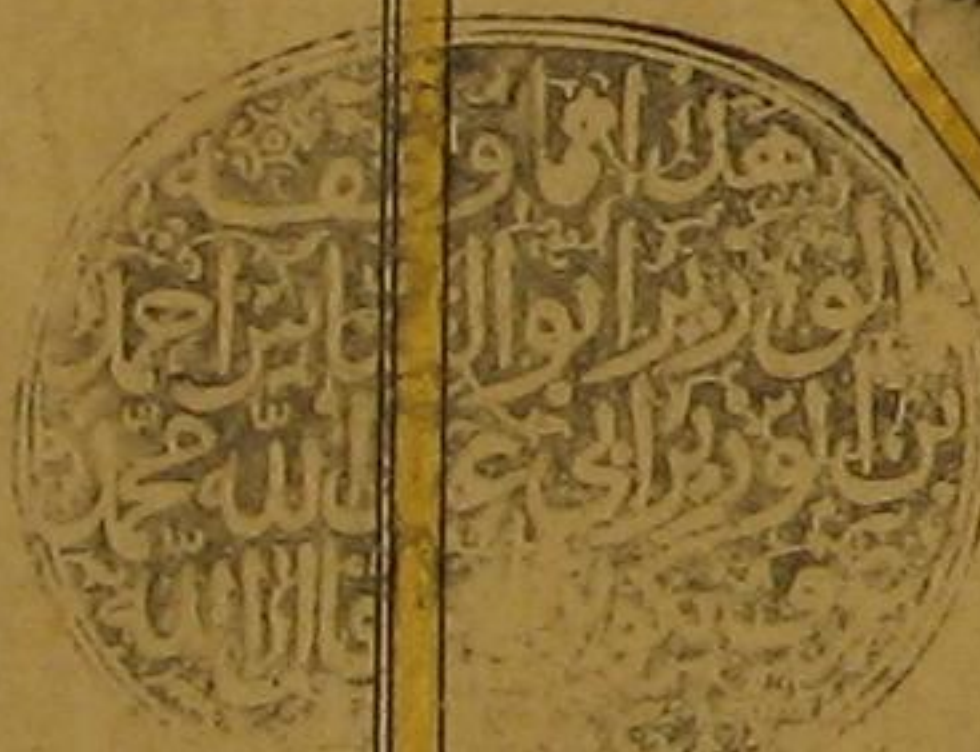 هذا ما وقفه
الوزير ابو العباس احمد
بن الوزير ابي عبد الله محمد
عرف اقال الله